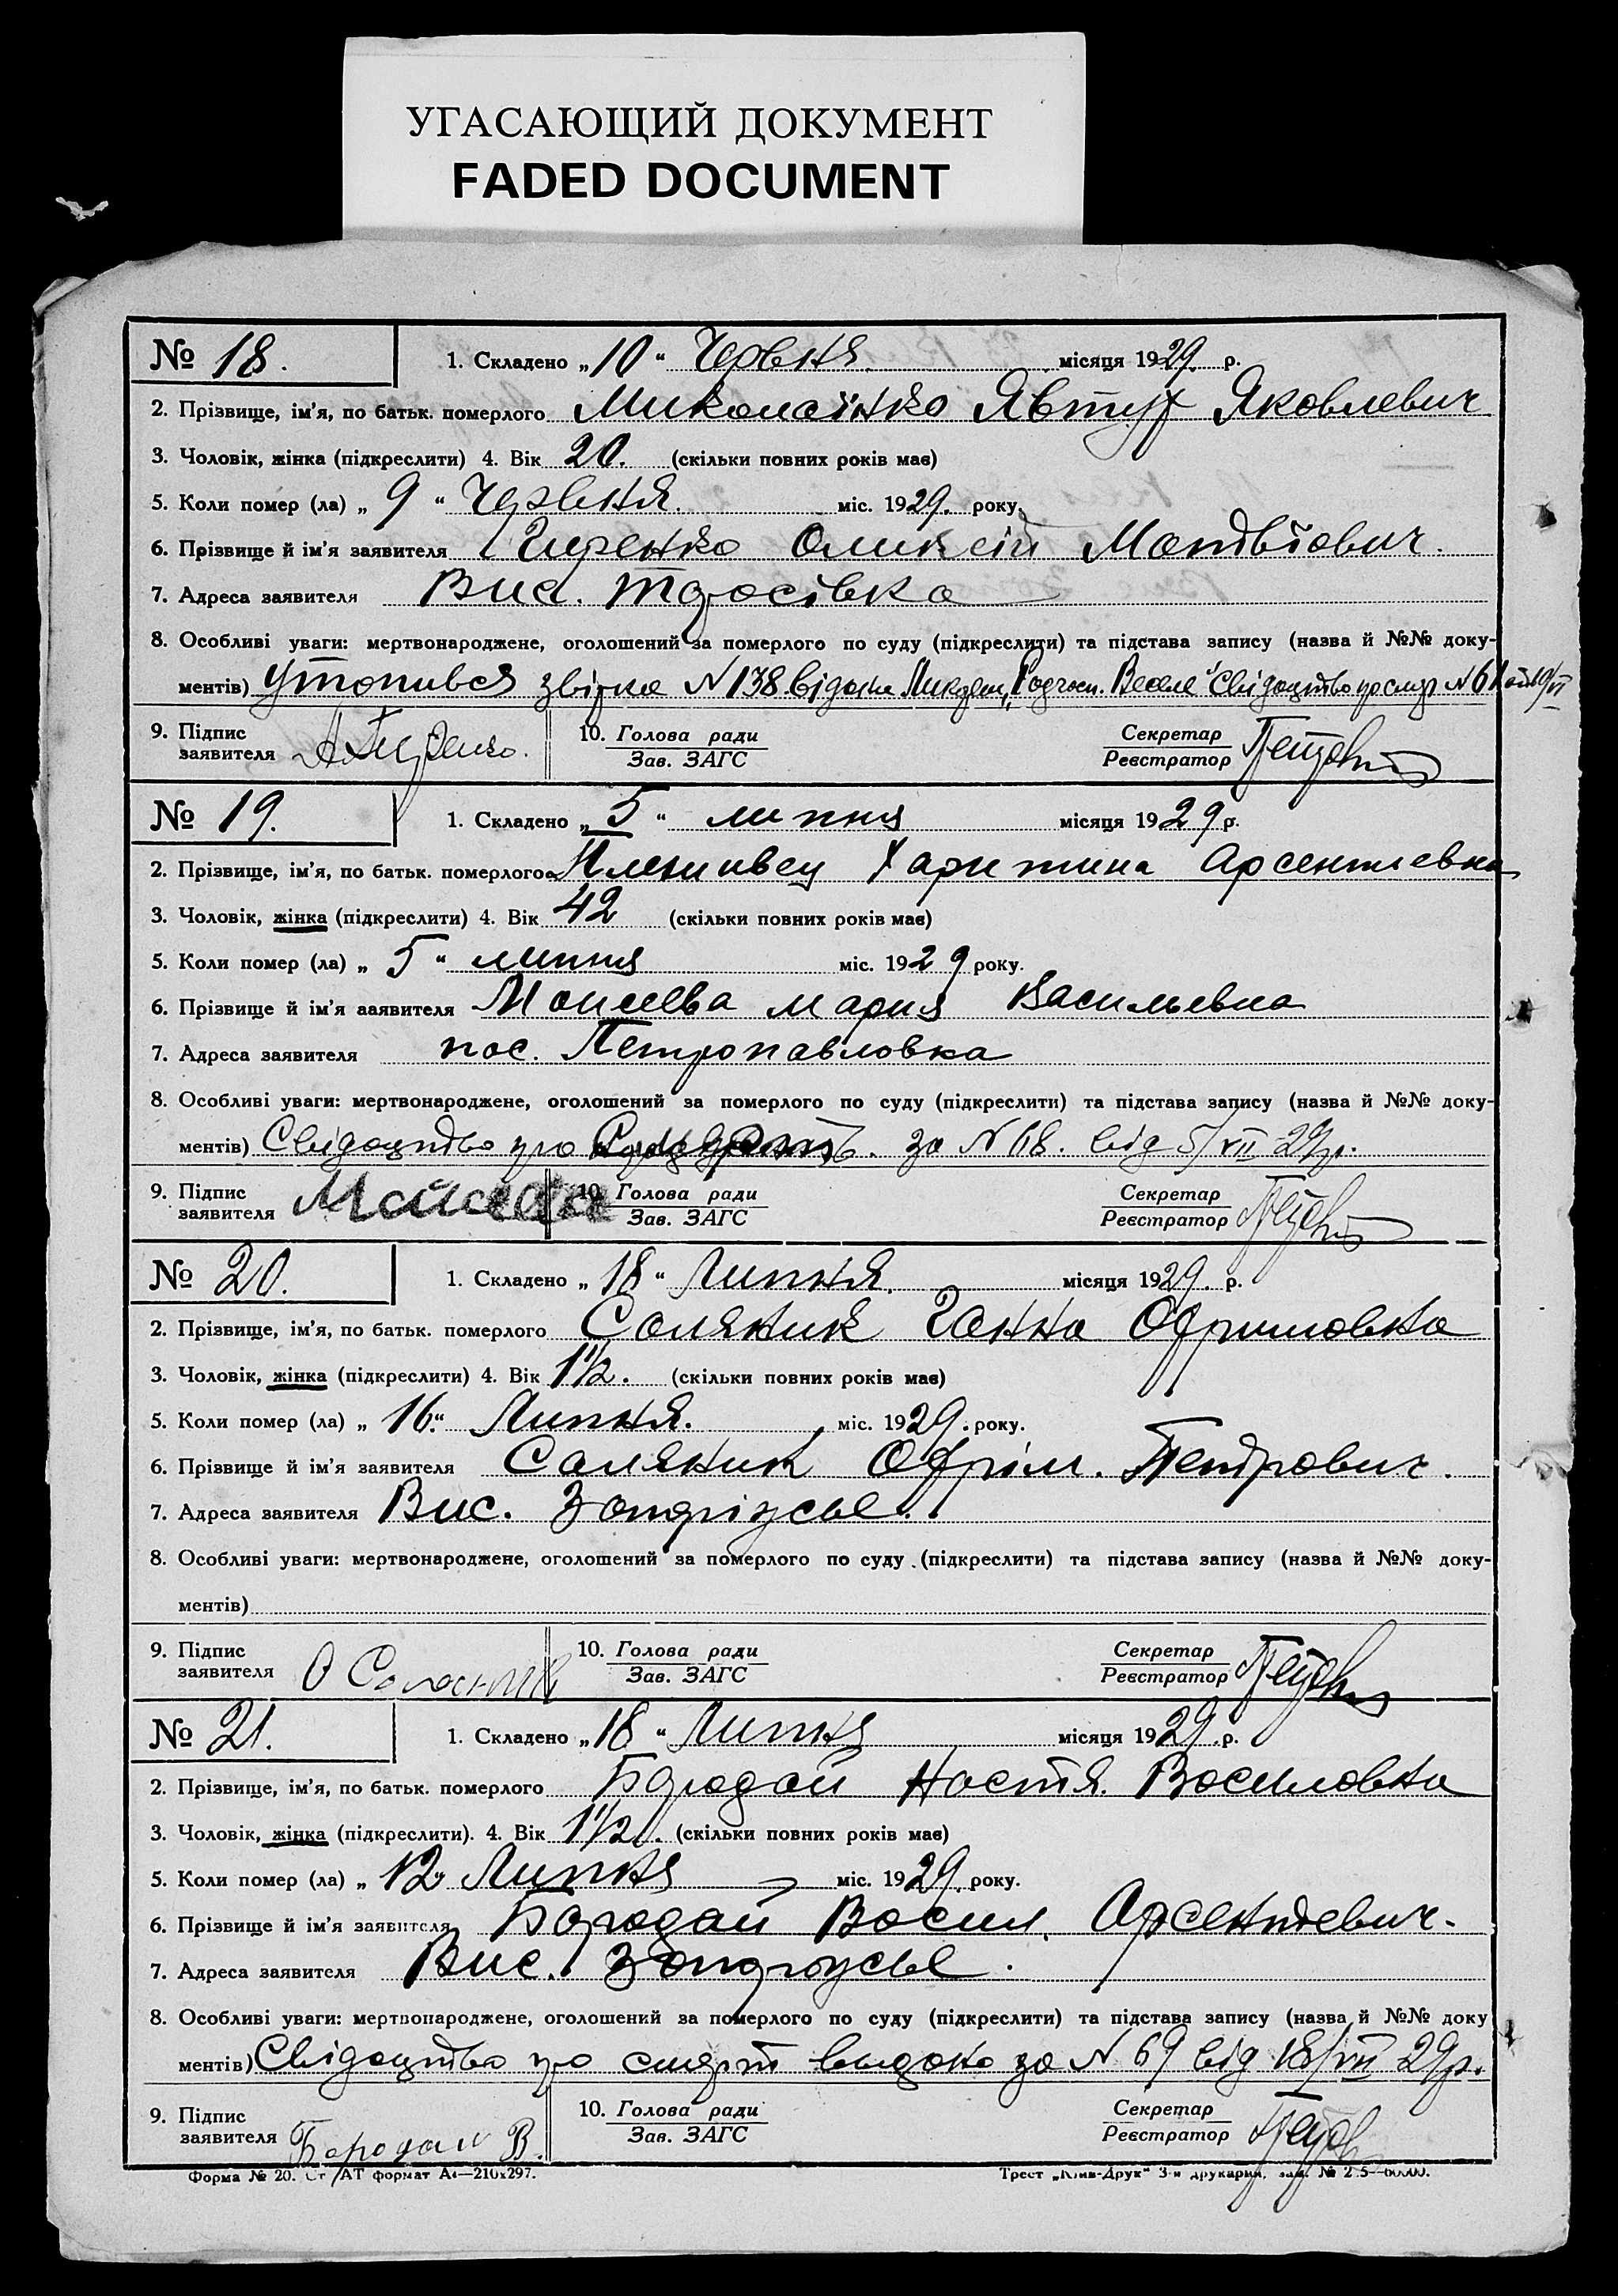 УГАСАЮЩИЙ ДОКУМЕНТ
FADED DOCUMENT
№ 18. 1. Складено „10“ Червня. місяця 1929. р.
2. Прізвище, ім'я, по батьк. померлого Миколаінко Явтух Яковлевич
3. Чоловік, жінка (підкреслити) 4. Вік 20. (скільки повних років має)
5. Коли помер (ла) „9“ Червня. міс. 1929. року.
6. Прізвище й ім'я заявителя Гиренко Оликсій Матвіович.
7. Адреса заявителя Вис. Тарасівка
8. Особливі уваги: мертвонароджене, оголошений за померлого по суду (підкреслити) та підстава запису (назва й №№ доку-
ментів) Утопився звістка N 138 Свідоцтво N 61
9. Підпис 10. Голова ради Секретар
заявителя А. Гиренко. Зав. ЗАГС Реєстратор
№ 19. 1. Складено „5“ липня місяця 1929 р.
2. Прізвище, ім'я, по батьк. померлого Плешивец Харитина Арсентиевна
3. Чоловік, жінка (підкреслити) 4. Вік 42 (скільки повних років має)
5. Коли помер (ла) „5“ липня міс. 1929 року.
6. Прізвище й ім'я заявителя Моисеева Мария Васильевна
7. Адреса заявителя пос. Петропавловка
8. Особливі уваги: мертвонароджене, оголошений за померлого по суду (підкреслити) та підстава запису (назва й №№ доку-
ментів) Свідоцтво про за N 68. від 5/VII 29р.
9. Підпис 10. Голова ради Секретар
заявителя Зав. ЗАГС Реєстратор
№ 20. 1. Складено „18“ Липня. місяця 1929. р.
2. Прізвище, ім'я, по батьк. померлого Саляник Ганна Офримовна
3. Чоловік, жінка (підкреслити) 4. Вік 1 1/2. (скільки повних років має)
5. Коли помер (ла) „16.“ Липня. міс. 1929. року.
6. Прізвище й ім'я заявителя Саляник Офрім. Петрович.
7. Адреса заявителя Вис.
8. Особливі уваги: мертвонароджене, оголошений за померлого по суду (підкреслити) та підстава запису (назва й №№ доку-
ментів)
9. Підпис 10. Голова ради Секретар
заявителя О Саляник Зав. ЗАГС Реєстратор
№ 21. 1. Складено „18“ Липня місяця 1929. р.
2. Прізвище, ім'я, по батьк. померлого Бародай Настя. Василовна
3. Чоловік, жінка (підкреслити). 4. Вік 1 1/2. (скільки повних років має)
5. Коли помер (ла) „12“ Липня міс. 1929. року.
6. Прізвище й ім'я заявителя Бародай Васил. Арсентьевич.
7. Адреса заявителя Вис.
8. Особливі уваги: мертвонароджене, оголошений за померлого по суду (підкреслити) та підстава запису (назва й №№ доку
ментів) Свідоцтво про смерт видано за N 69 від 18/VII 29р.
9. Підпис 10. Голова ради Секретар
заявителя Бородай В. Зав. ЗАГС Реєстратор
Форма № 20. Ст АТ формат А4—210х297. Трест „Київ-Друк“ 3-я друкарня, зам. №